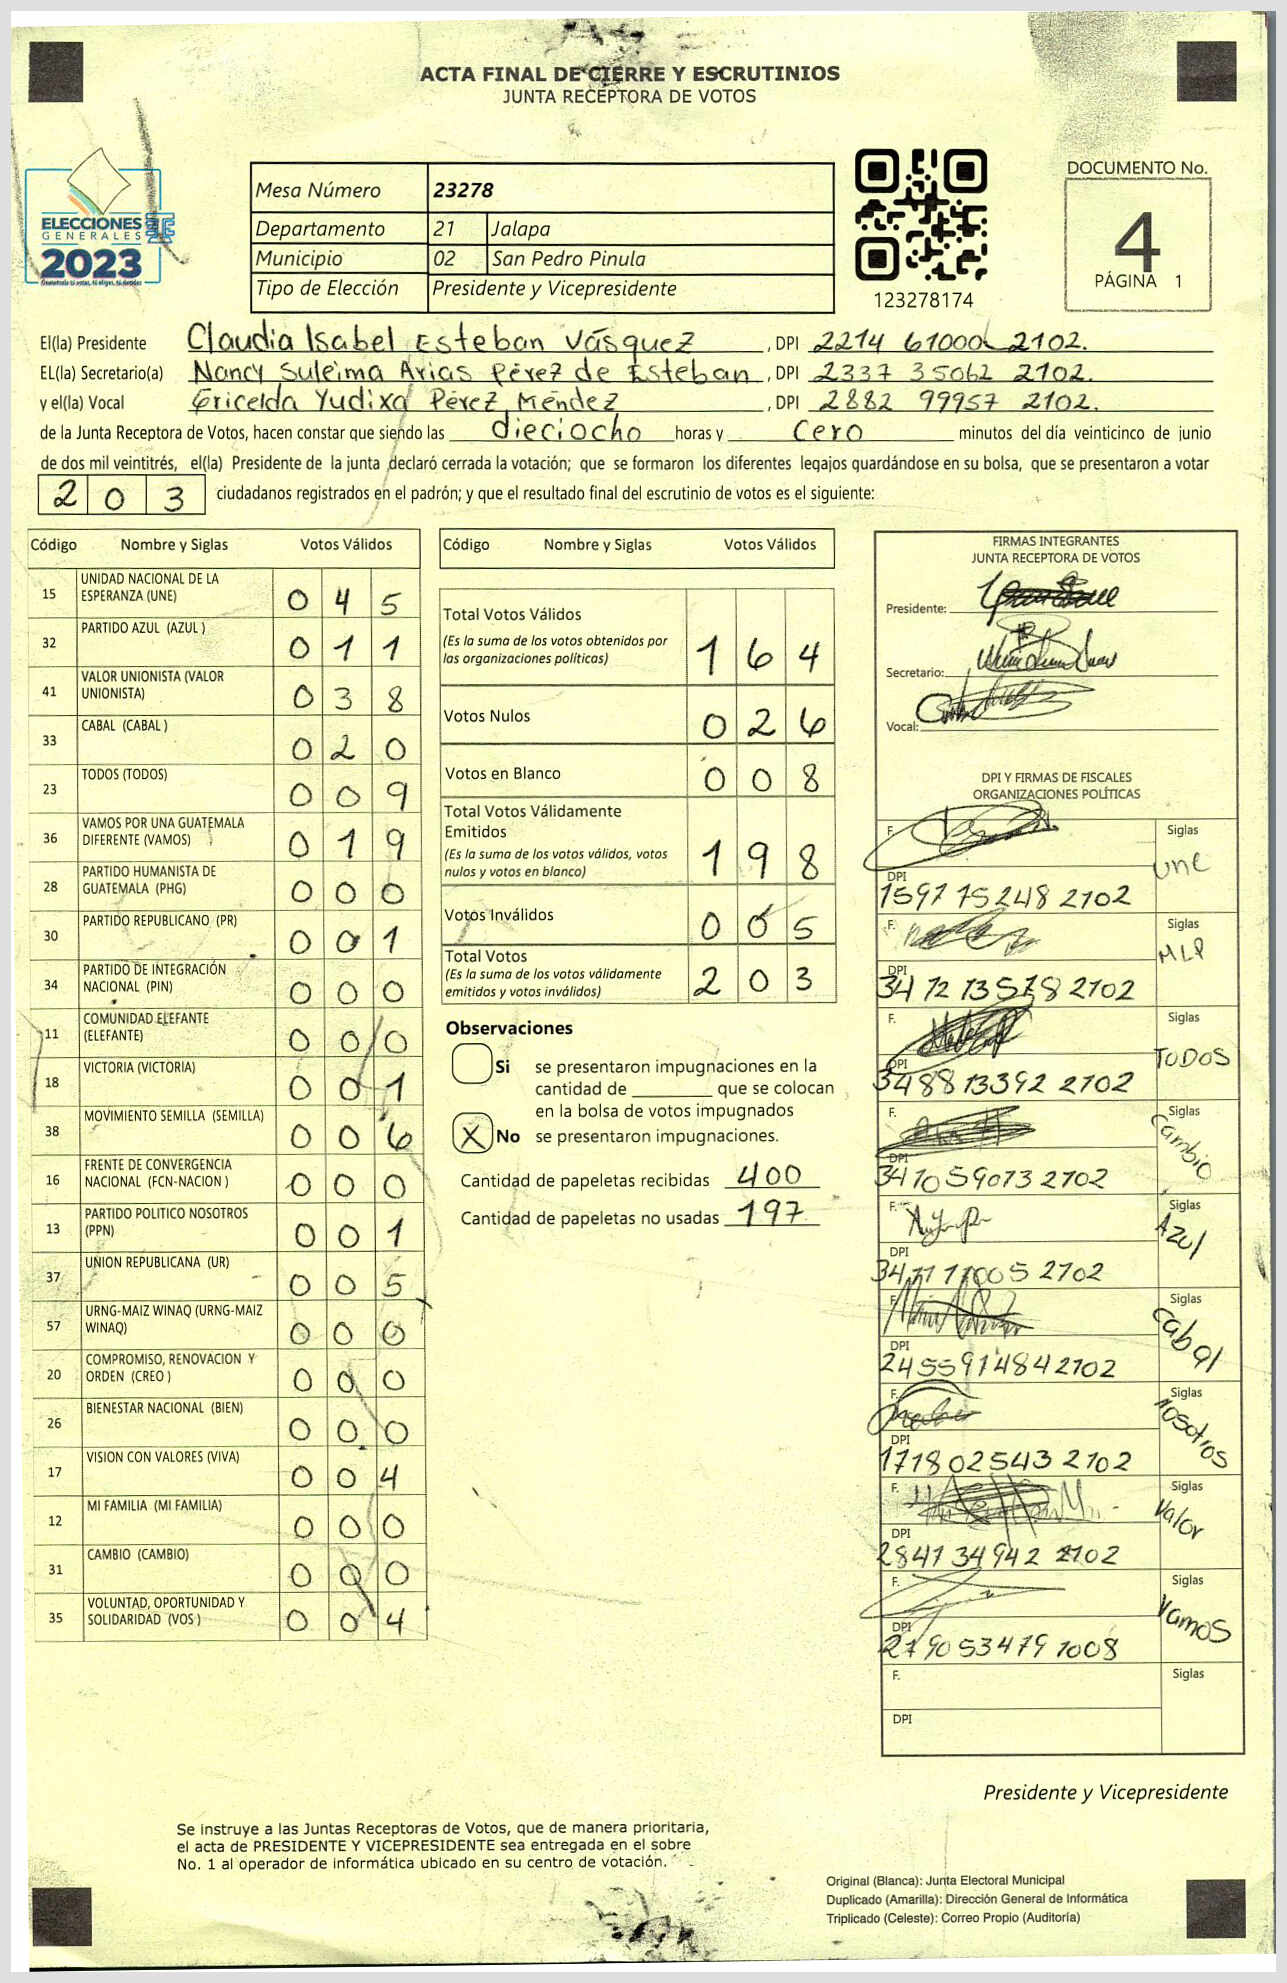 ACTA FINAL DE CIERRE Y ESCRUTINIOS
JUNTA RECEPTORA DE VOTOS
ELECCIONES
GENERALES
2023
Mesa Número 23278
Departamento 21 Jalapa
Municipio 02 San Pedro Pinula
Tipo de Elección Presidente y Vicepresidente
123278174
DOCUMENTO No.
4
PÁGINA 1
El(la) Presidente Claudia Isabel Esteban Vásquez, DPI 2214 61000 2102.
EL(la) Secretario(a) Nancy Suleima Arias Pérez de Esteban, DPI 2337 35062 2102.
y el(la) Vocal Gricelda Yudixa Pérez Méndez, DPI 2882 99957 2102.
de la Junta Receptora de Votos, hacen constar que siendo las dieciocho horas y cero minutos del día veinticinco de junio
de dos mil veintitrés, el(la) Presidente de la junta declaró cerrada la votación; que se formaron los diferentes legajos guardándose en su bolsa, que se presentaron a votar
203 ciudadanos registrados en el padrón; y que el resultado final del escrutinio de votos es el siguiente:
Código Nombre y Siglas Votos Válidos
15 UNIDAD NACIONAL DE LA ESPERANZA (UNE) 045
32 PARTIDO AZUL (AZUL ) 011
41 VALOR UNIONISTA (VALOR UNIONISTA) 038
33 CABAL (CABAL ) 020
23 TODOS (TODOS) 009
36 VAMOS POR UNA GUATEMALA DIFERENTE (VAMOS) 019
28 PARTIDO HUMANISTA DE GUATEMALA (PHG) 000
30 PARTIDO REPUBLICANO (PR) 001
34 PARTIDO DE INTEGRACIÓN NACIONAL (PIN) 000
11 COMUNIDAD ELEFANTE (ELEFANTE) 000
18 VICTORIA (VICTORIA) 001
38 MOVIMIENTO SEMILLA (SEMILLA) 006
16 FRENTE DE CONVERGENCIA NACIONAL (FCN-NACION ) 000
13 PARTIDO POLITICO NOSOTROS (PPN) 001
37 UNION REPUBLICANA (UR) 005
57 URNG-MAIZ WINAQ (URNG-MAIZ WINAQ) 000
20 COMPROMISO, RENOVACION Y ORDEN (CREO ) 000
26 BIENESTAR NACIONAL (BIEN) 000
17 VISION CON VALORES (VIVA) 004
12 MI FAMILIA (MI FAMILIA) 000
31 CAMBIO (CAMBIO) 000
35 VOLUNTAD, OPORTUNIDAD Y SOLIDARIDAD (VOS ) 004
Código Nombre y Siglas Votos Válidos
Total Votos Válidos
(Es la suma de los votos obtenidos por las organizaciones políticas) 164
Votos Nulos 026
Votos en Blanco 008
Total Votos Válidamente Emitidos
(Es la suma de los votos válidos, votos nulos y votos en blanco) 198
Votos Inválidos 005
Total Votos
(Es la suma de los votos válidamente emitidos y votos inválidos) 203
Observaciones
Si se presentaron impugnaciones en la
cantidad de ________ que se colocan
en la bolsa de votos impugnados
X No se presentaron impugnaciones.
Cantidad de papeletas recibidas 400
Cantidad de papeletas no usadas 197
FIRMAS INTEGRANTES
JUNTA RECEPTORA DE VOTOS
Presidente:
Secretario:
Vocal:
DPI Y FIRMAS DE FISCALES
ORGANIZACIONES POLÍTICAS
F. Siglas une
DPI 1597 75248 2102
F. Siglas MLP
DPI 3472 13578 2102
F. Siglas TODOS
DPI 3488 13392 2102
F. Siglas cambio
DPI 3410 59073 2702
F. Siglas Azul
DPI
F. Siglas cabal
DPI 2455 91484 2102
F. Siglas nosotros
DPI 1718 02543 2102
F. Siglas Valor
DPI 2841 34942 2102
F. Siglas Vamos
DPI 2790 53479 1008
F. Siglas
DPI
Presidente y Vicepresidente
Se instruye a las Juntas Receptoras de Votos, que de manera prioritaria,
el acta de PRESIDENTE Y VICEPRESIDENTE sea entregada en el sobre
No. 1 al operador de informática ubicado en su centro de votación.
Original (Blanca): Junta Electoral Municipal
Duplicado (Amarilla): Dirección General de Informática
Triplicado (Celeste): Correo Propio (Auditoría)